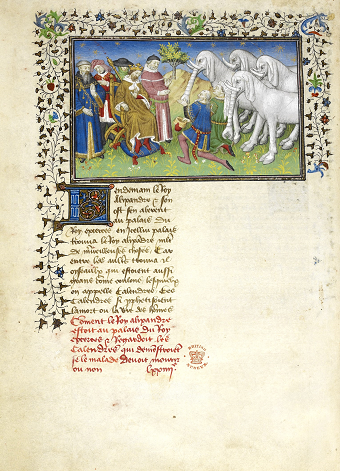 Lendemain le Roy
alixandre et son
ost sen alerent
au palais du
Roy en icellui palais
trouva le Roy alixandre mlt
de merveilleuses choses Car
entre les aultres trouva il
oyseaulx qui estoient aussi
grans come coulons lesquelz
on appelle Calendres Ces
Calendres si prophetisoient
la mort ou la vie des homes
Coment le Roy alixandre
estoit au palais du Roy
et Regardoit les
Calendres qui demonstroient
se le malade devoit mourir
ou non
BRITISH
MUSEUM